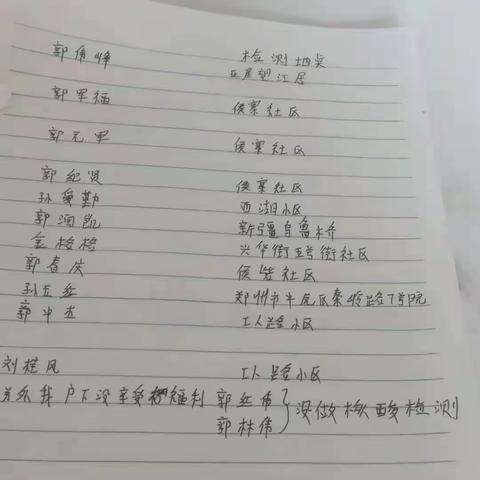 郭伟峰 检测地点
望江居
郭军福 侯寨社区
郭元军 侯寨社区
郭纪贤 侯寨社区
孙爱勤 西湖小区
郭润凯 新疆乌鲁木齐
金格格 兴华街五号街社区
郭春庆 侯寨社区
孙 郑州市 7号院
郭中 工人路小区
刘桂凤 工人路小区
户下没享受 福利 郭红伟
郭林伟 没做核酸检测